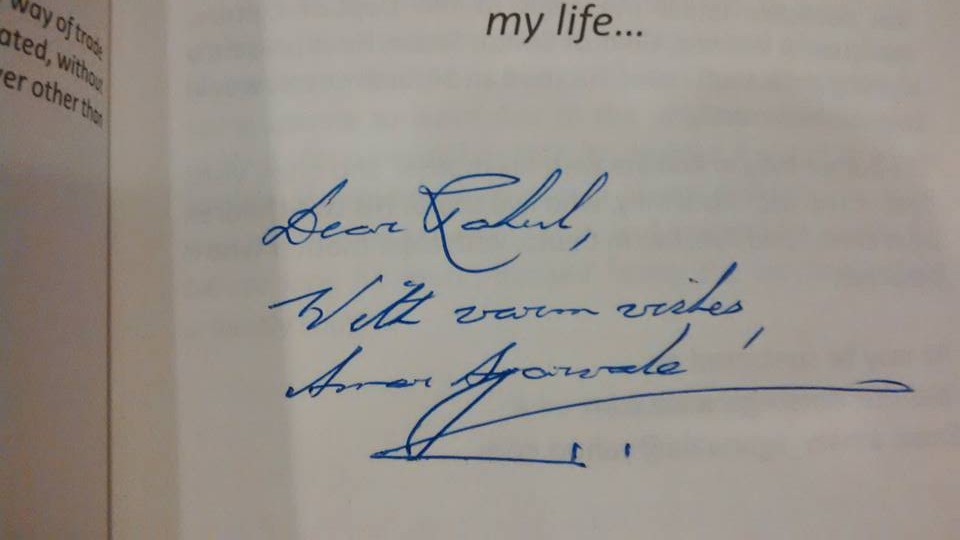 way of trade
ated, without
er other than
my life...
Dear Rahul,
With warm wishes,
Amar Agarwala